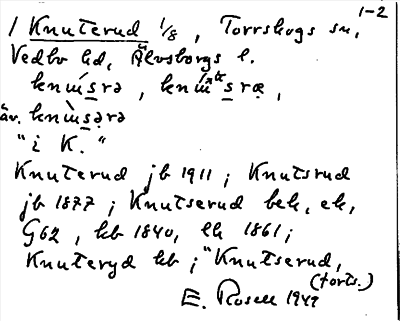 1-2
/ Knuterud 1/8, Torrskogs sn,
Vedbo hd, Älvsborgs l.
"i K."
Knuterud jb 1911; Knutsrud
jb 1877; Knutserud bek, ek,
G62, kb 1840, lk 1861;
Knuteryd kb; "Knutserud,
(forts.)
E. Rosell 1949